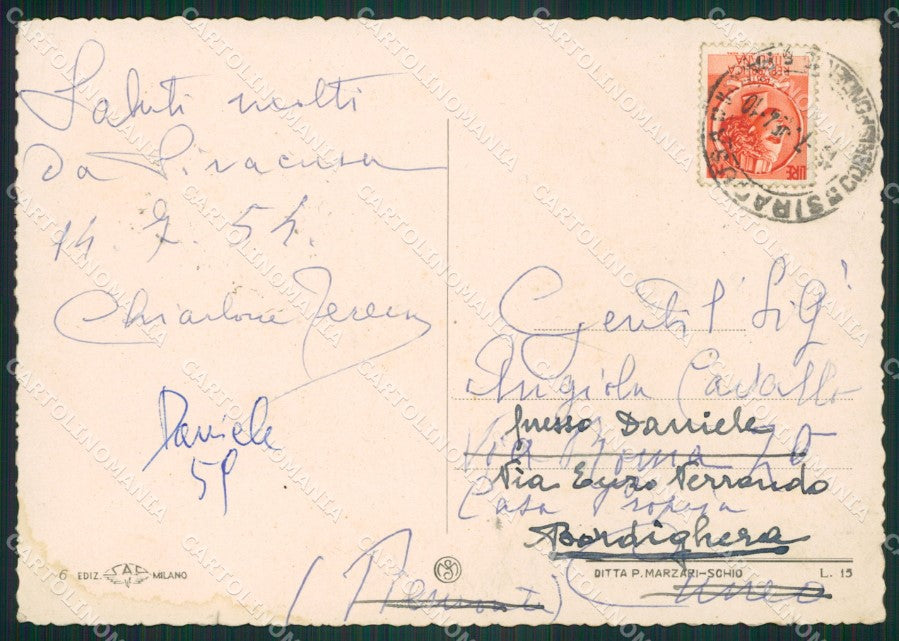 Saluti molti
da Siracusa
14. 7. 54.
Chiarlone Teresa
Daniele
59
6 EDIZ. SAF MILANO
REPUBBLICA
ITALIANA
LIRE
SIRACUSA
Gentil Sigª
Angiola Cavallo
presso Daniele
Via Roma 70
Via Enzo Ferrando
Casa Propria
Bordighera
DITTA P. MARZARI-SCHIO L. 15
Cuneo
(Piemonte)
CARTOLINOMANIA